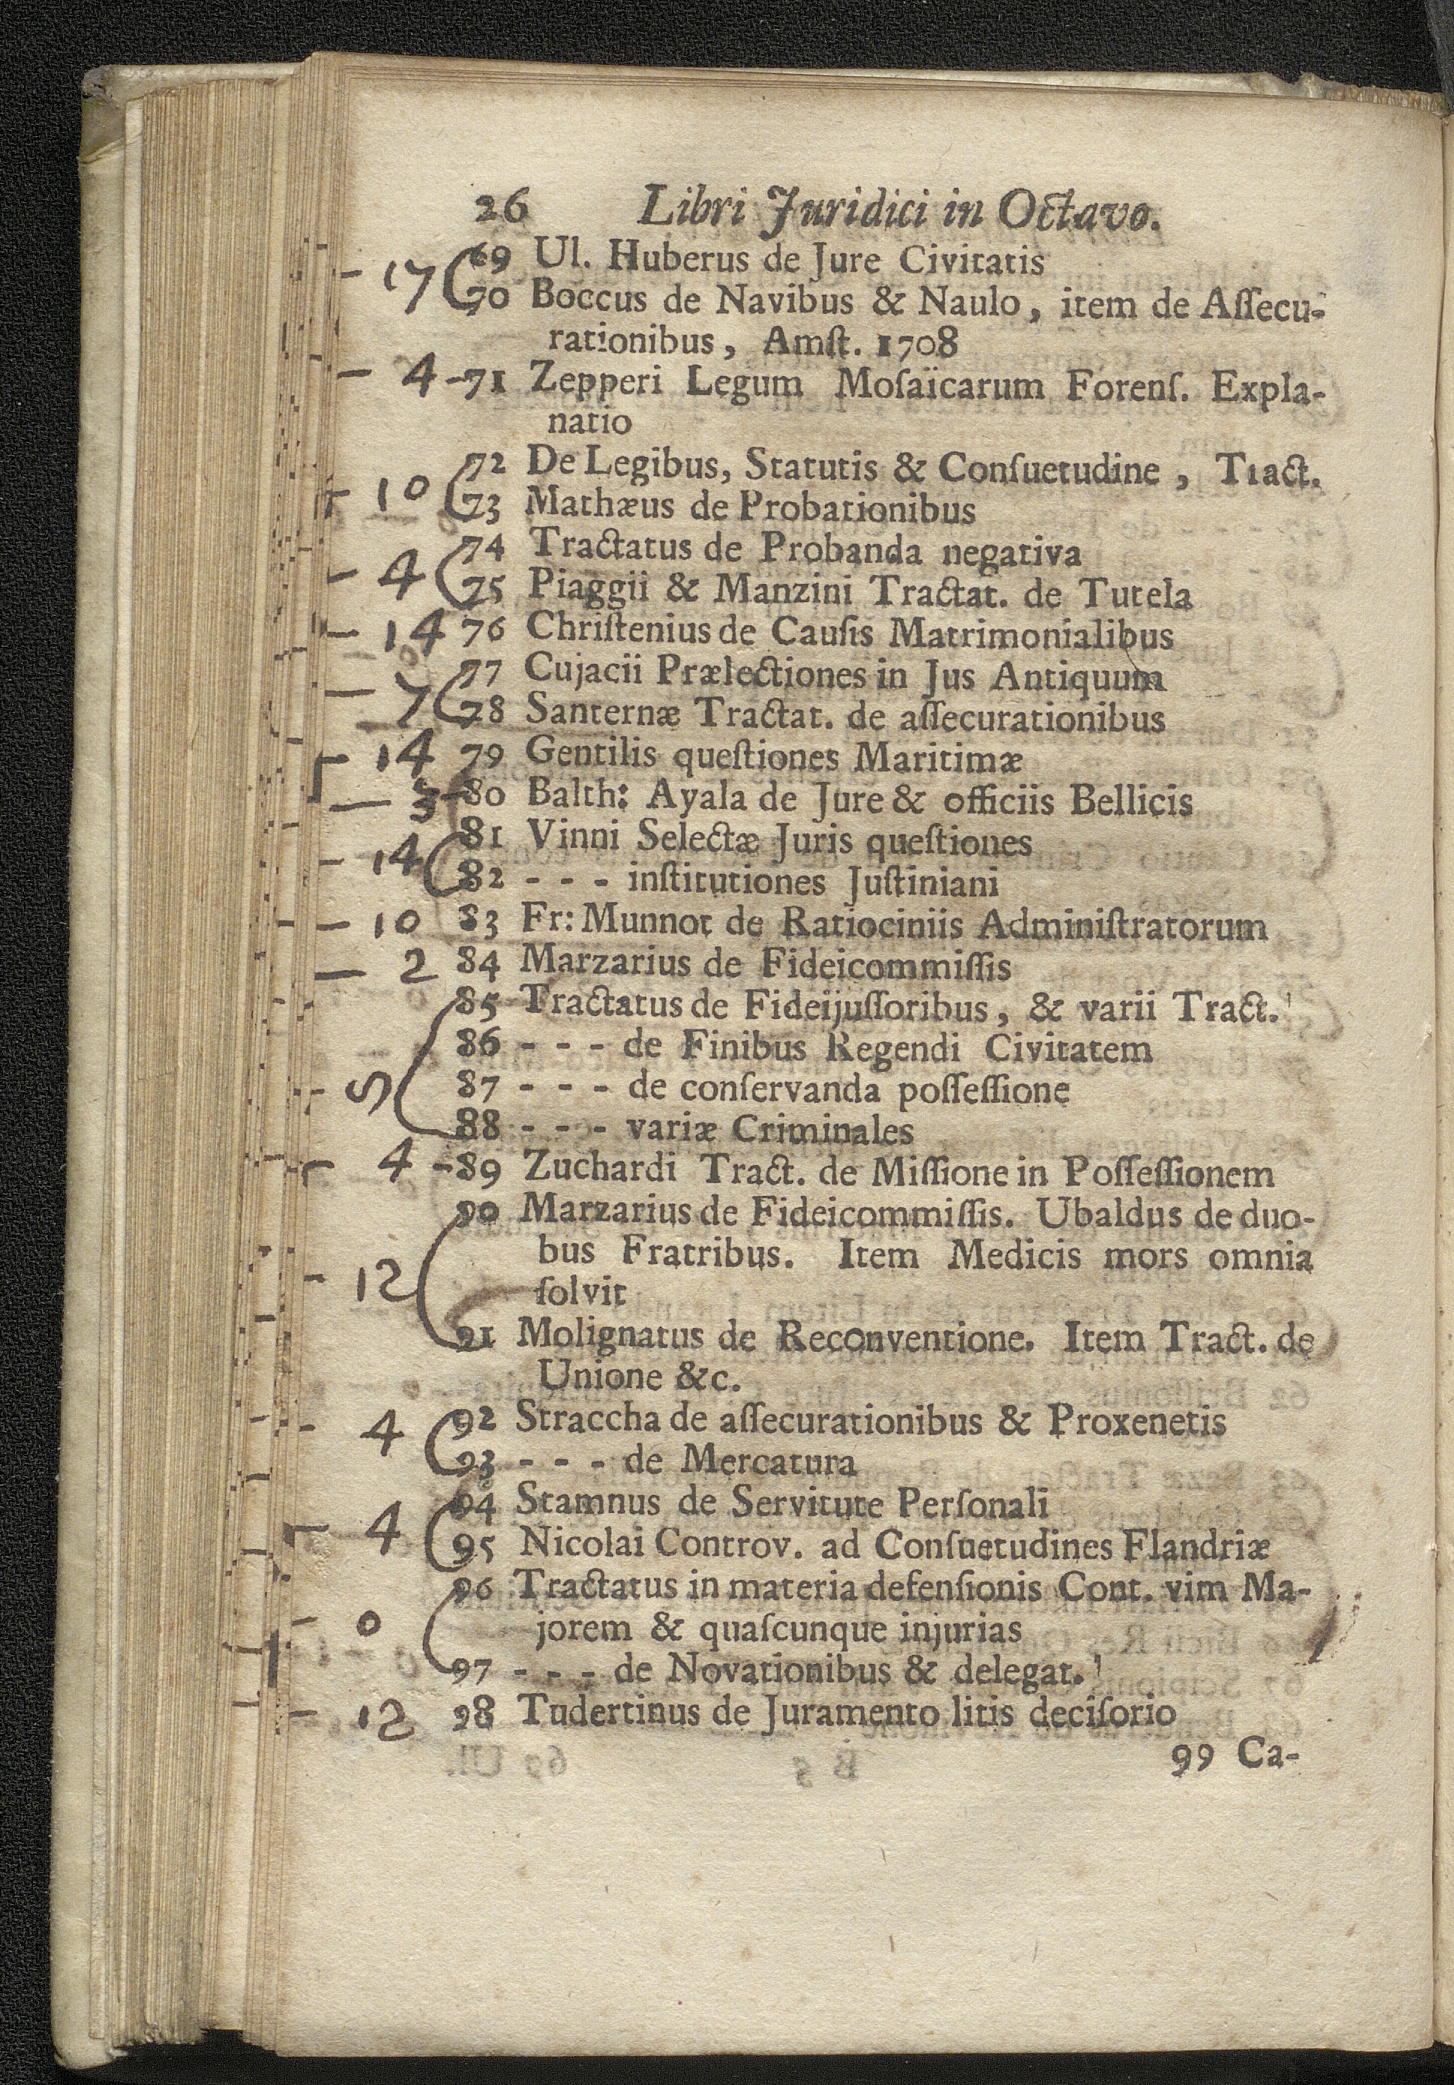 26 Libri Juridici in Octavo.
- 17 69 Ul. Huberus de Jure Civitatis
70 Boccus de Navibus & Naulo, item de Aſſecu-
rationibus, Amſt. 1708
- 4 - 71 Zepperi Legum Moſaïcarum Forenſ. Expla-
natio
72 De Legibus, Statutis & Conſuetudine, Tract.
- 10 73 Mathæus de Probationibus
74 Tractatus de Probanda negativa
- 4 75 Piaggii & Manzini Tractat. de Tutela
- 14 76 Chriſtenius de Cauſis Matrimonialibus
77 Cujacii Prælectiones in Jus Antiquum
- 7 78 Santernæ Tractat. de aſſecurationibus
- 14 79 Gentilis queſtiones Maritimæ
- 3 - 80 Balth: Ayala de Jure & officiis Bellicis
81 Vinni Selectæ Juris queſtiones
- 14 82 - - - inſtitutiones Juſtiniani
- 10 83 Fr: Munnot de Ratiociniis Adminiſtratorum
- 2 84 Marzarius de Fideicommiſſis
85 Tractatus de Fideijuſſoribus, & varii Tract.
86 - - - de Finibus Regendi Civitatem
- 5 87 - - - de conſervanda poſſeſſione
88 - - - variæ Criminales
- 4 - 89 Zuchardi Tract. de Miſſione in Poſſeſſionem
90 Marzarius de Fideicommiſſis. Ubaldus de duo-
bus Fratribus. Item Medicis mors omnia
- 12 ſolvit
91 Molignatus de Reconventione. Item Tract. de
Unione &c.
- 4 92 Straccha de aſſecurationibus & Proxenetis
93 - - - de Mercatura
94 Stamnus de Servitute Perſonali
- 4 95 Nicolai Controv. ad Conſuetudines Flandriæ
96 Tractatus in materia defenſionis Cont. vim Ma-
- 0 jorem & quaſcunque injurias
97 - - - de Novationibus & delegat.
- 12 98 Tudertinus de Juramento litis deciſorio
99 Ca-